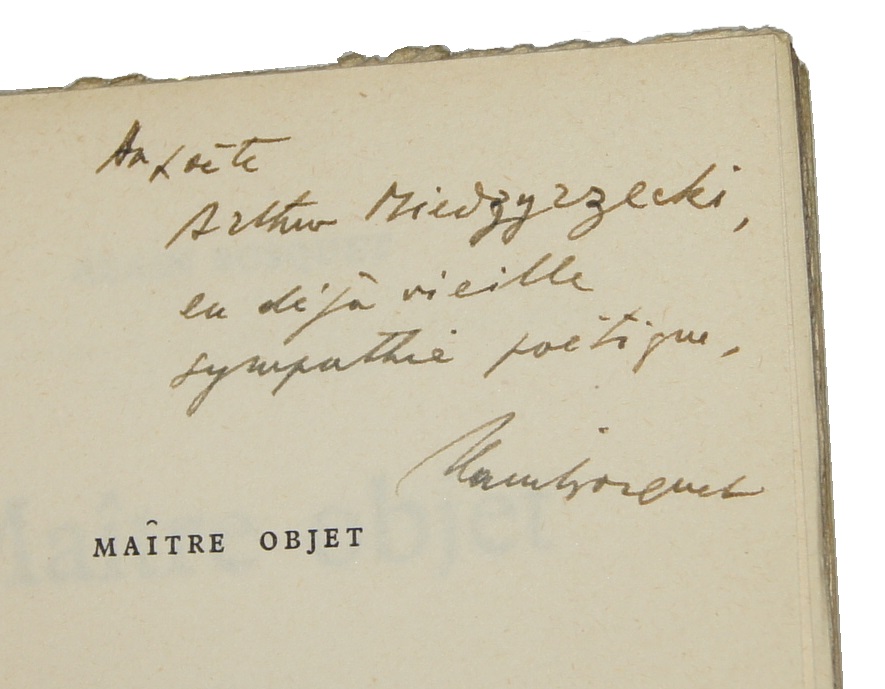 Au poète
Arthur Miedzyrzecki,
en déjà vieille
sympathie poétique,
Alain Bosquet
MAÎTRE OBJET